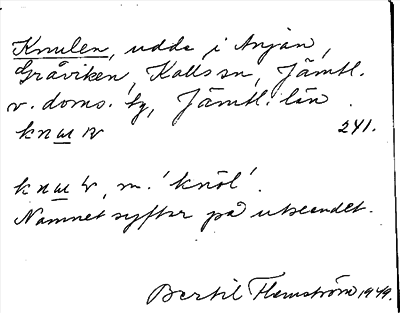 Knulen, udde i Anjan,
Gråviken, Kalls sn, Jämtl.
v. doms. tg, Jämtl. län.
241.
m. 'knöl'.
Namnet syftar på utseendet.
Bertil Flemström 1949.